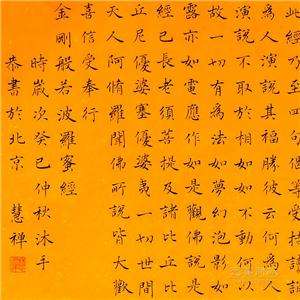 此經乃至四句偈等受持讀誦
為人演說其福勝彼云何為人
演說不取於相如如不動何以
故一切有為法如夢幻泡影如
露亦如電應作如是觀佛說是
經已長老須菩提及諸比丘比
丘尼優婆塞優婆夷一切世間
天人阿脩羅聞佛所說皆大歡
喜信受奉行
金剛般若波羅蜜經
時歲次癸巳仲秋沐手
恭書於北京 慧禪